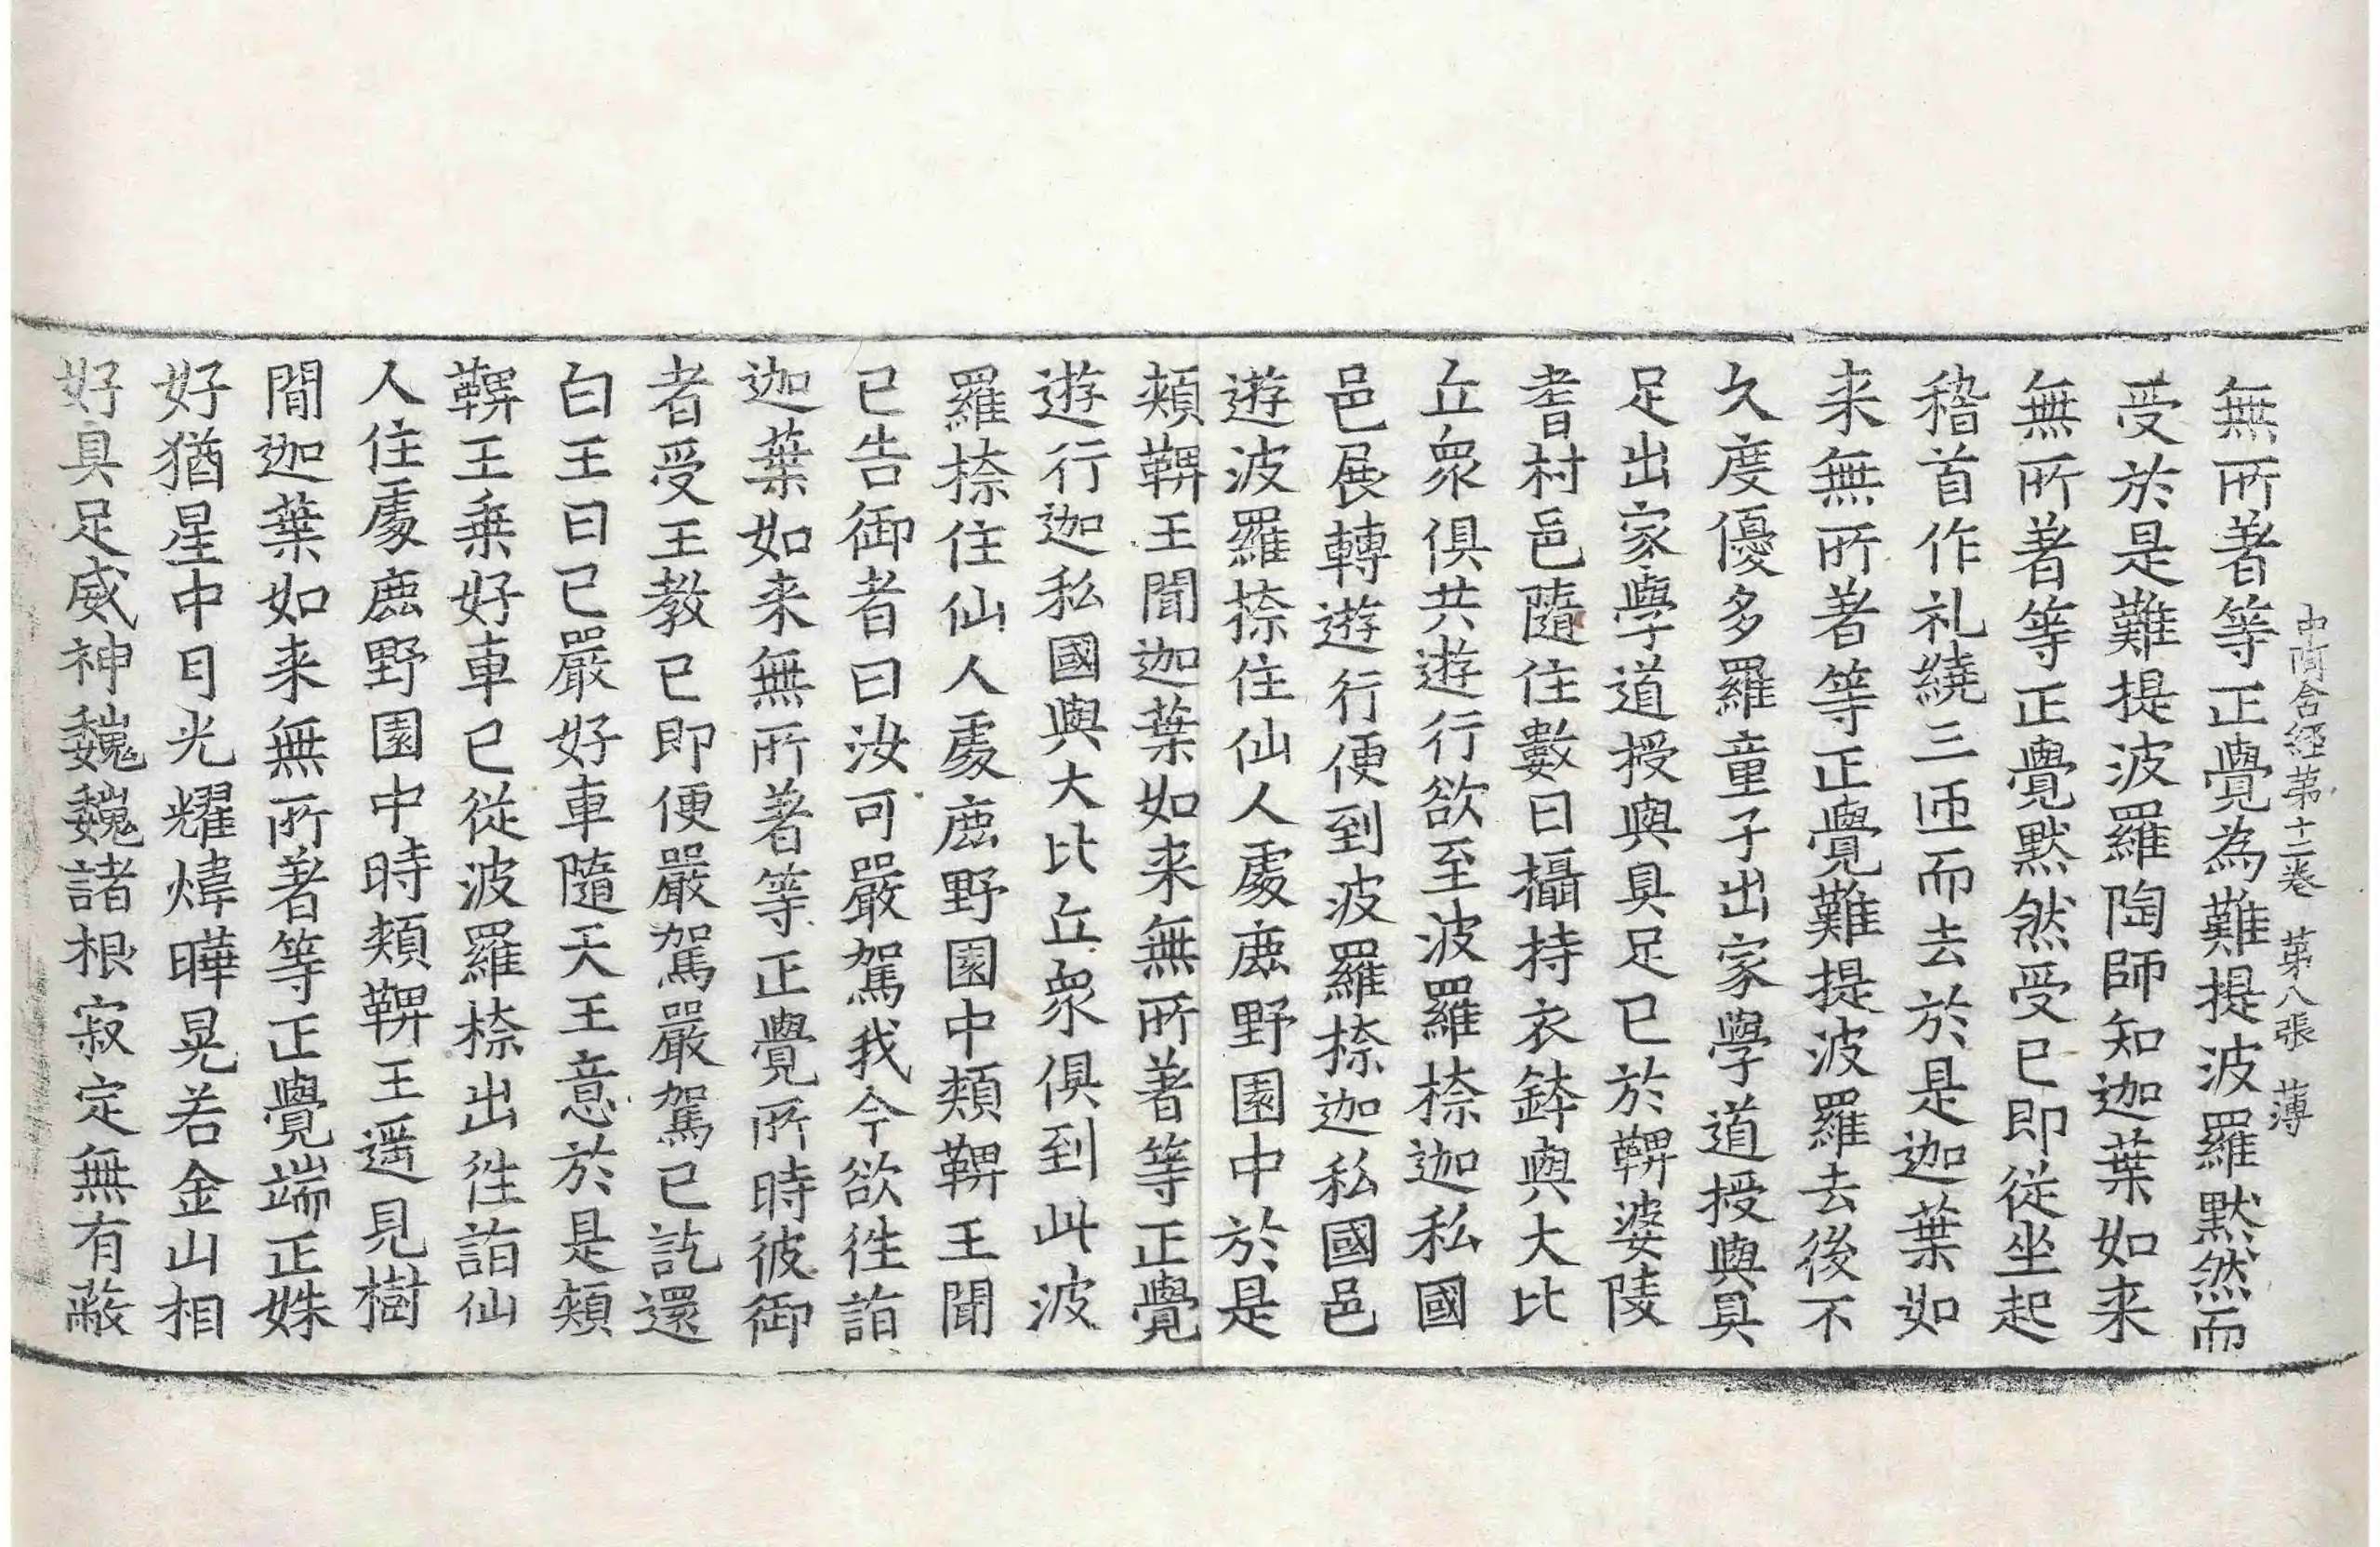 中阿含経第十二卷 第八張 薄
無所著等正覺為難提波羅黙然而
受於是難提波羅陶師知迦葉如来
無所著等正覺黙然受已即從坐起
稽首作礼繞三匝而去於是迦葉如
来無所著等正覺難提波羅去後不
久度優多羅童子出家學道授與具
足出家學道授與具足已於鞞婆陵
耆村邑隨住數日攝持衣鉢與大比
丘衆俱共遊行欲至波羅㮈迦私國
邑展轉遊行便到波羅㮈迦私國邑
遊波羅㮈住仙人處鹿野園中於是
頰鞞王聞迦葉如来無所著等正覺
遊行迦私國與大比丘衆俱到此波
羅㮈住仙人處鹿野園中頰鞞王聞
已告御者曰汝可嚴駕我今欲徃詣
迦葉如来無所著等正覺所時彼御
者受王教已即便嚴駕嚴駕已訖還
白王曰已嚴好車隨天王意於是頰
鞞王乗好車已從波羅㮈出徃詣仙
人住處鹿野園中時頰鞞王遥見樹
間迦葉如来無所著等正覺端正姝
好猶星中月光耀煒曄晃若金山相
好具足威神巍巍諸根寂定無有蔽